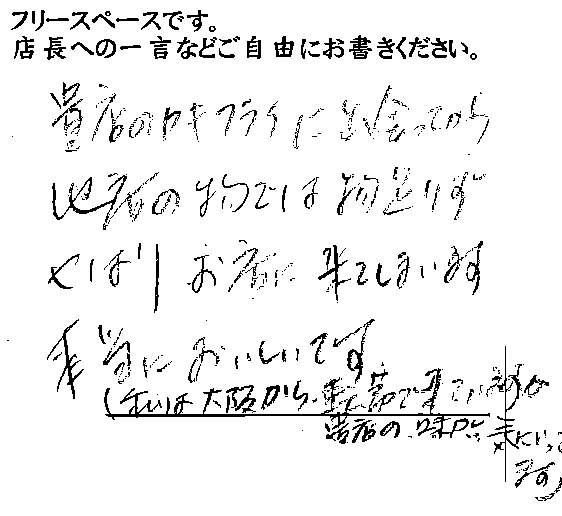 フリースペースです。
店長への一言などご自由にお書きください。
貴店のカキフライに出会ってから
他店の物では物足りず
やはり お店に来てしまいます
本当においしいです
(私は大阪から 電車で来ていますが
貴店の味が気に入って
ます)